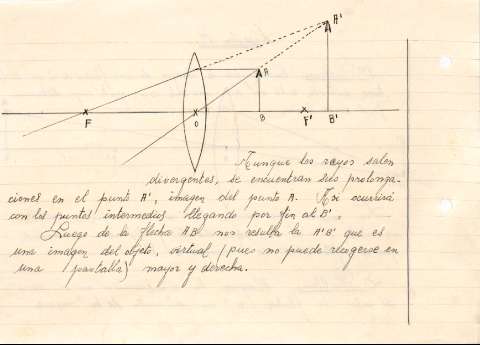 A'
A
F
O
B
F'
B'
Aunque los rayos salen
divergentes, se encuentran sus prolonga-
ciones en el punto A', imagen del punto A. Así ocurrirá
con los puntos intermedios llegando por fin al B'.
Luego de la flecha AB nos resulta la A'B' que es
una imagen del objeto, virtual (pues no puede recogerse en
una pantalla) mayor y derecha.